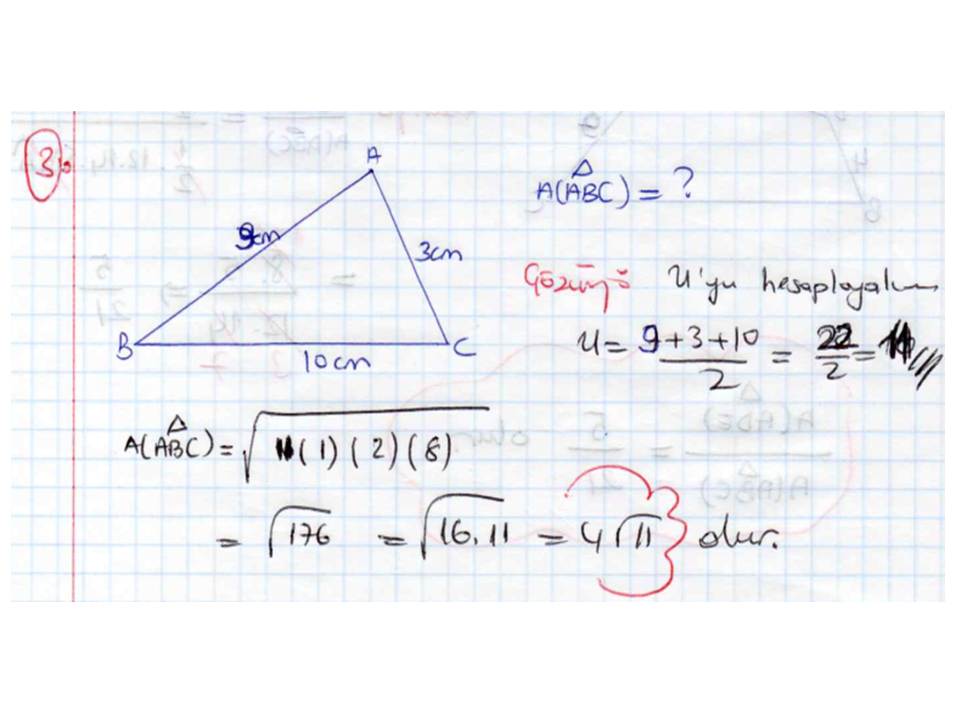 3.
A
9cm
3cm
B
10cm
C
A(ABC) = ?
Çözüm: U'yu hesaplayalım
U = 9+3+10 / 2 = 22/2 = 11
A(ABC) = √11(1)(2)(8)
= √176 = √16.11 = 4√11 olur.